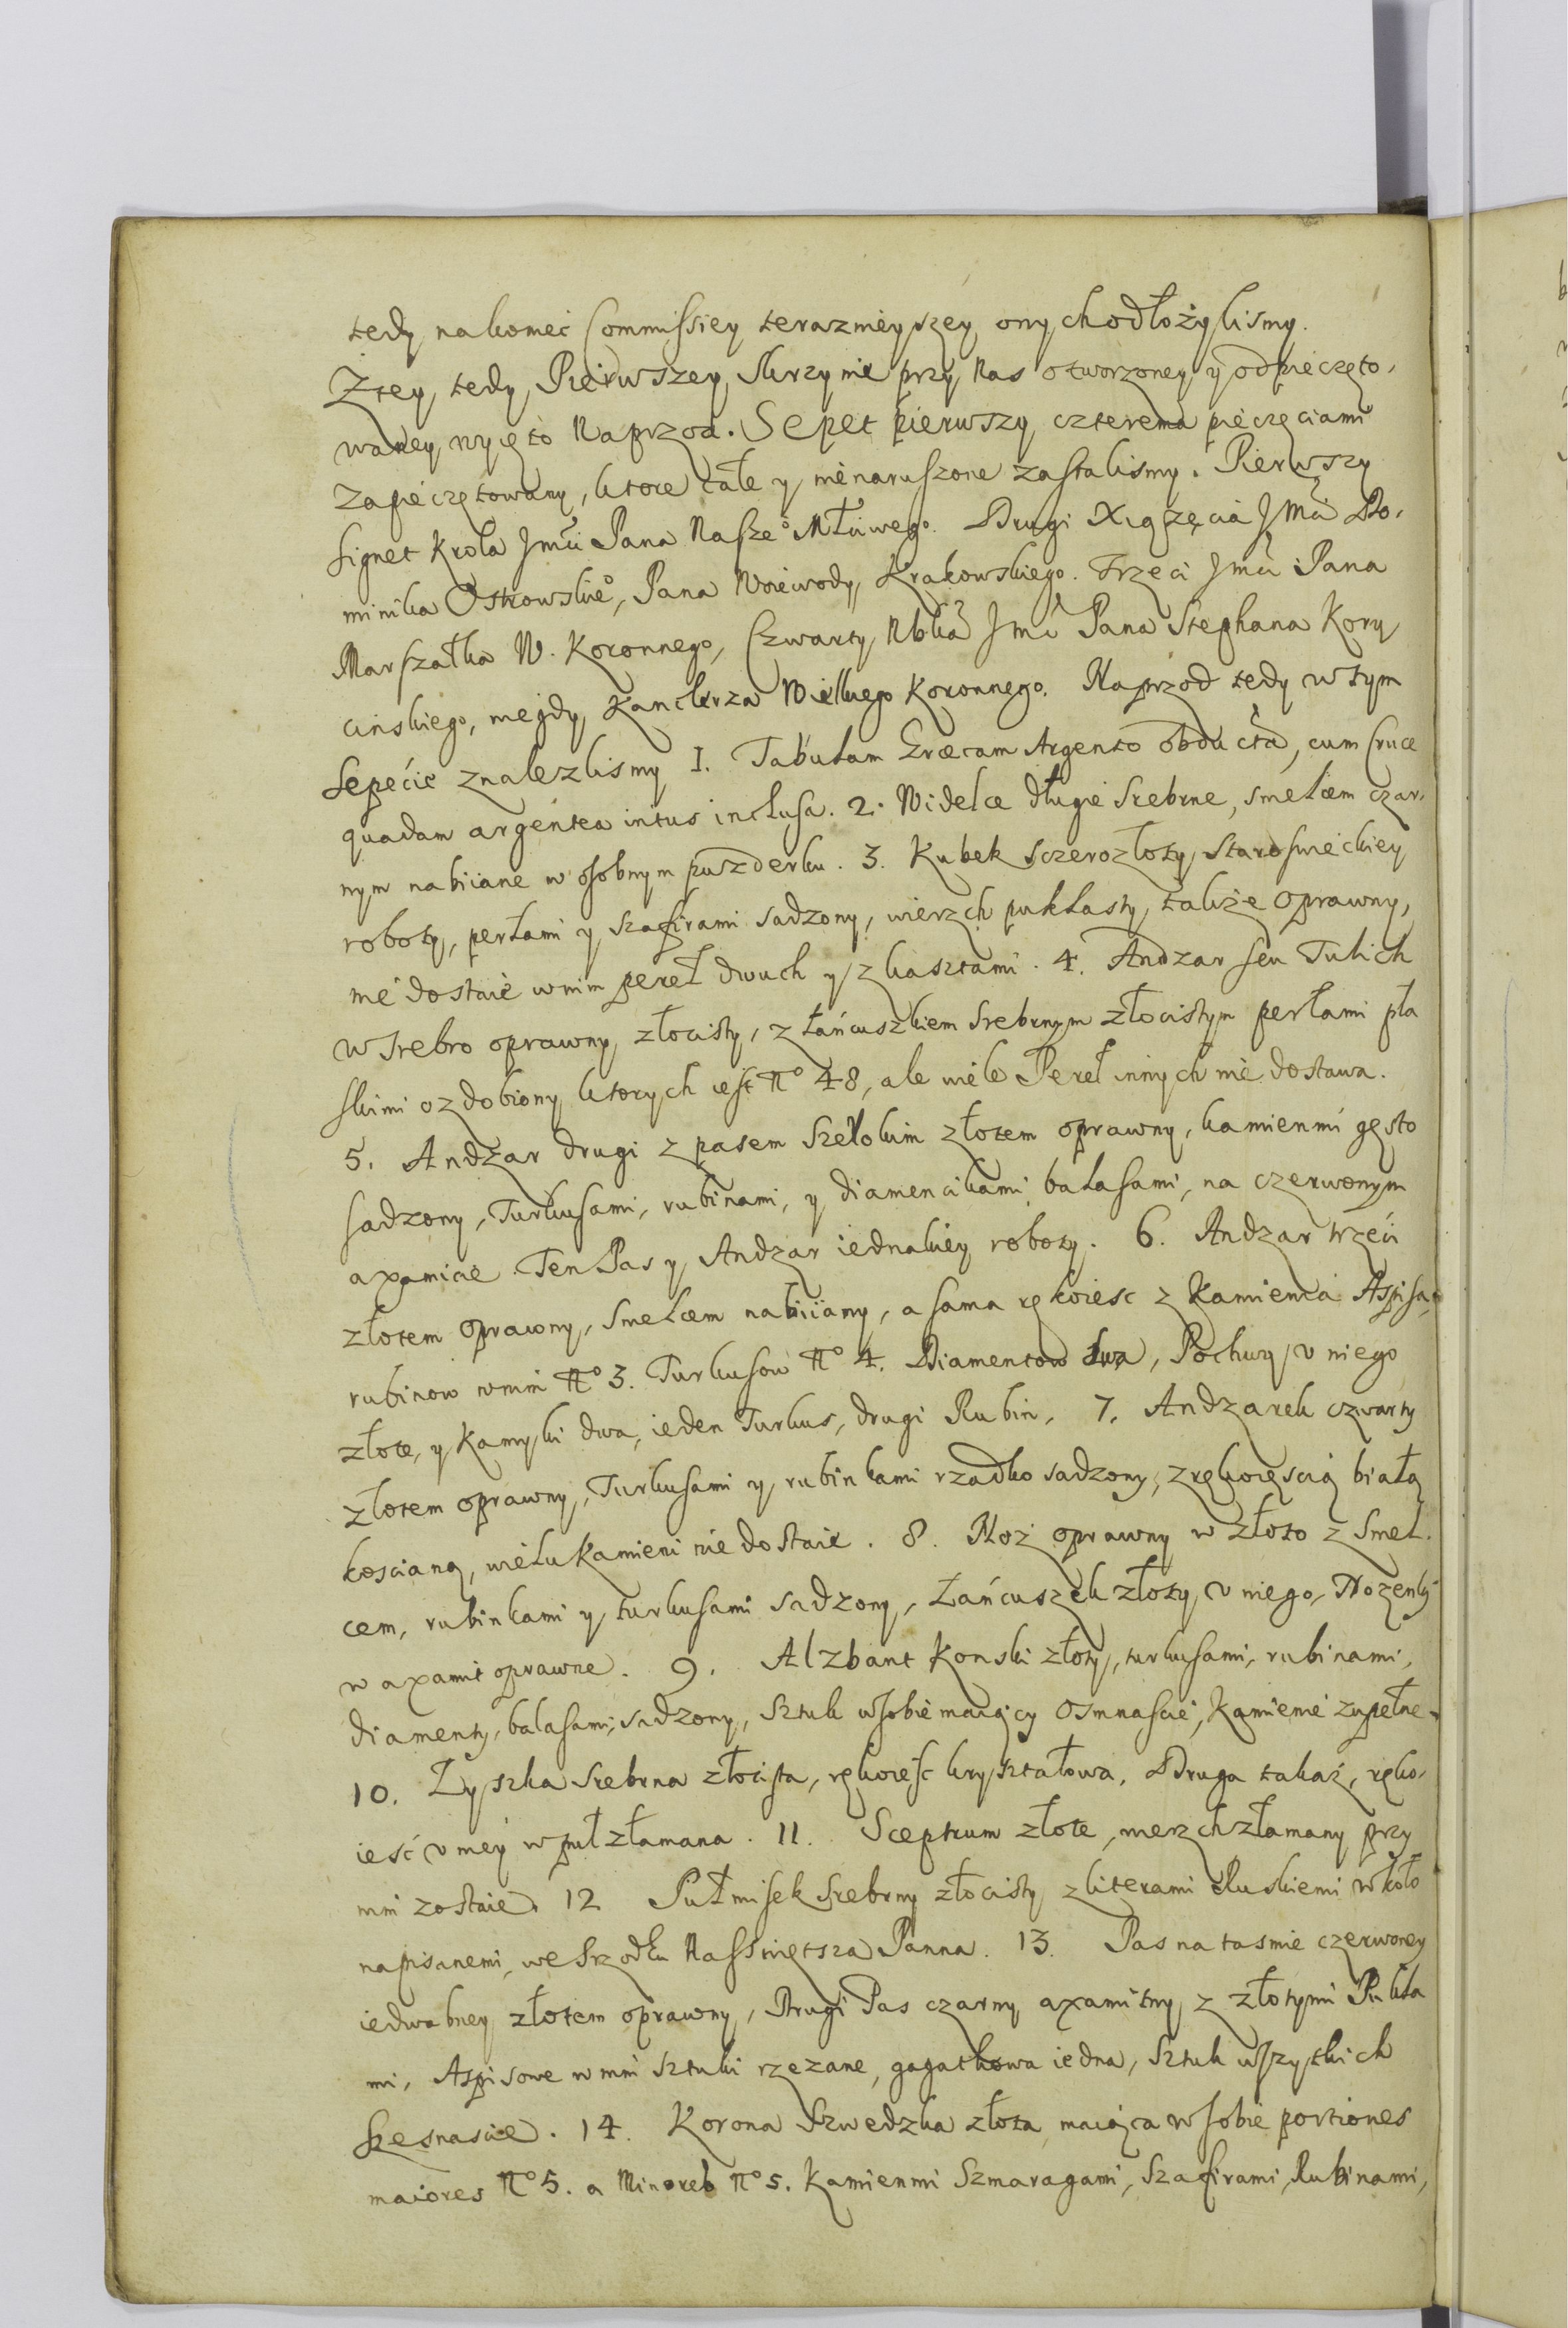 tedy nakoniec Commissiey teraznieyszey onych odłożylismy.
Z tey tedy Pierwszey Skrzynie przy Nas otworzoney y odpieczęto,
waney wyięto Naprzod. Sepet pierwszy czterema pieczęciami
zapieczętowany, ktore całe y nienaruszone zastalismy. Pierwszy
Signet Krola Jmći Pana Nasze° Młciwego. Drugi Xiążęcia Jmći Do,
minika Ostrowskie°, Pana Woiewody Krakowskiego. Trzeci Jmći Pana
Marszałka W. Koronnego, Czwarty Nbka Jmći Pana Stephana Kory
cinskiego, niegdy Kanclerza Wielkiego Koronnego. Naprzod tedy w tym
Sepecie znalezlismy 1. Tabulam Graecam Argento obductã, cum Cruce
quadam argentea intus inclusa. 2. Widelce długie srebrne, smelcem czar,
nym nabiiane w osobnym puszderku. 3. Kubek sczerozłoty staroswieckiey
roboty, perłami y szafirami sadzony, wierzch puklasty, także oprawny,
nie dostaie w nim pereł dwuch y z kasztami. 4. Andzar seu Tulich
w srebro oprawny złocisty, z łańcuszkiem srebrnym złocistym perłami pła
skimi ozdobiony, ktorych iest N° 48, ale wiele Pereł innych nie dostawa.
5. Andżar drugi z pasem szerokim złotem oprawny, kamienmi gęsto
sadzony, Turkusami, rubinami, y diamencikami, balasami, na czerwonym
axamicie. Ten Pas y Andzar iednakiey roboty. 6. Andzar trzeci
złotem oprawny, smelcem nabiiany, a sama rękoiesc z Kamienia Aspisa,
rubinow w nim N° 3. Turkusow N° 4. Diamentow dwa, Pochwy v niego
złote, y Kamyki dwa, ieden Turkus, drugi Rubin. 7. Andzarek czwarty
złotem oprawny, Turkusami y rubinkami rzadko sadzony, z rękoięscią białą
koscianą, wielu Kamieni nie dostaie. 8. Noż oprawny w złoto z smel.
cem, rubinkami y turkusami sadzony, Łańcuszek złoty v niego, Nozenki
w axamit oprawne. 9. Alzbant Konski złoty, turkusami, rubinami,
diamenty, balasami, sadzony, sztuk w sobie maiący osmnascie, Kamienie zupełne.
10. Łyszka srebrna złocista, rękoieść krysztalowa, Druga takaż, ręko,
ieść v niey wpuł złamana. 11. Sceptrum złote, wierzch złamany przy
nim zostaie. 12 Pułmisek srebrny złocisty z literami Ruskiemi wkoło
napisanemi, we srzodku Naswiętsza Panna. 13. Pas na tasmie czerwoney
iedwabney złotem oprawny, Drugi Pas czarny axamitny z złotymi Pukla
mi, Aspisowe w nim sztuki rzezane, gagatkowa iedna, sztuk wszytkich
szesnascie. 14. Korona Szwedzka złota maiąca w sobie portiones
maiores N° 5. a Minores N° 5. Kamienmi Szmaragami, Szafirami, Rubinami,